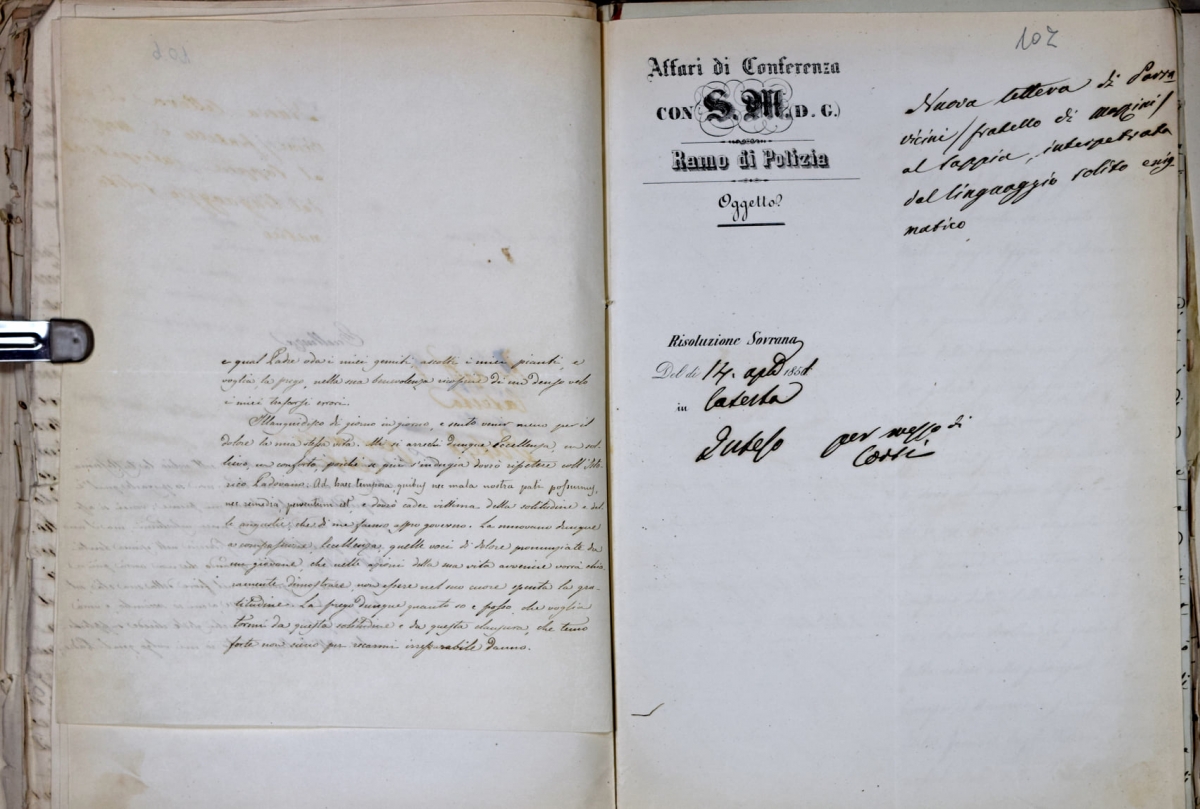 e qual Padre oda i miei gemiti, ascolti i miei pianti, e
voglia la prego, nella sua benevolenza coprire di un denso velo
i miei trascorsi errori.
Illanguidisco di giorno in giorno, e sento venir meno per il
dolore la mia stessa vita. Mi si arrechi dunque Eccellenza, un sol-
lievo, un conforto, poichè se più s'indugia dovrò ripetere coll'Isto-
rico Padovano. Ad haec tempora, quibus nec mala nostra pati possumus,
nec remedia perventum est, e dovrò cader vittima della solitudine e del-
le angustie, che di me fanno aspro governo. La muovano dunque
a compassione, Eccellenza, quelle voci di dolore pronunziate da
un giovane, che nelle azioni della sua vita avvenire vorrà chia-
ramente dimostrare, non essere nel suo cuore spenta la gra-
titudine. La prego dunque quanto so e posso, che voglia
tormi da questa solitudine e da questa clausura, che temo
forte non siano per recarmi irreparabile danno.
107
Affari di Conferenza
CON S. M. (D. G.)
Ramo di Polizia
Oggetto
Nuova lettera di Parra
vicini / fratello di Mazzini /
al Tappia, interpetrata
dal linguaggio solito enig
matico
Risoluzione Sovrana
Del dì 14. aple 185
in Caserta
Inteso per mezzo di
Corsi
106